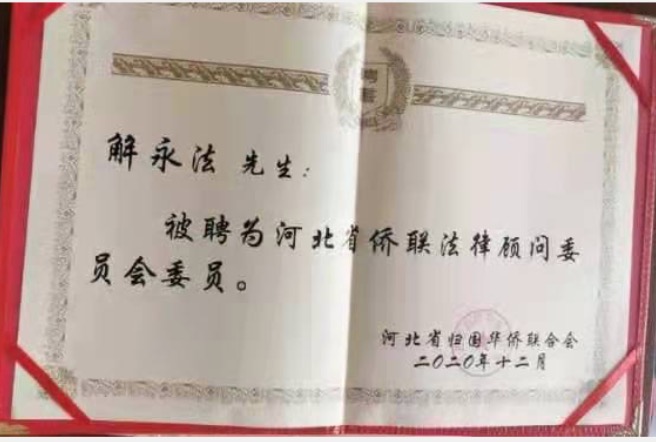 聘书
解永法 先生：
被聘为河北省侨联法律顾问委
员会委员。
河北省归国华侨联合会
二〇二〇年十二月